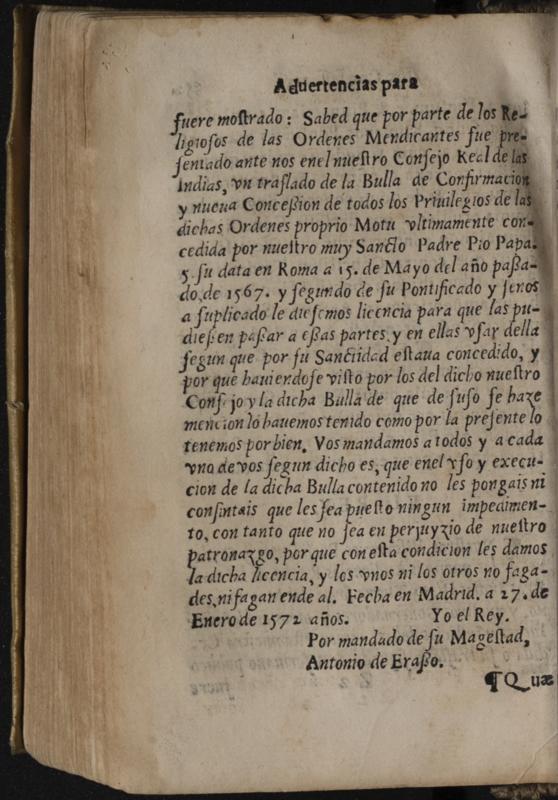 Aduertencias para
fuere moſtrado: Sabed que por parte de los Re-
ligioſos de las Ordenes Mendicantes fue pre-
ſentado ante nos enel nueſtro Conſejo Real de las
Indias, vn traſlado de la Bulla de Confirmacion
y nueua Conceßion de todos los Priuilegios de las
dichas Ordenes proprio Motu vltimamente con-
cedida por nueſtro muy Sancto Padre Pio Papa.
5. ſu data en Roma a 15. de Mayo del año paßa-
do, de 1567. y ſegundo de ſu Pontificado y ſenos
a ſuplicado le dieſemos licencia para que las pu-
dießen paßar a eßas partes, y en ellas vſar della
ſegun que por ſu Sanctidad eſtaua concedido, y
por que hauiendoſe viſto por los del dicho nueſtro
Conſejo y la dicha Bulla de que de ſuſo ſe haze
mencion lo hauemos tenido como por la preſente lo
tenemos por bien. Vos mandamos a todos y a cada
vno de vos ſegun dicho es, que enel vſo y execu-
cion de la dicha Bulla contenido no les pongais ni
conſintais que les ſea pueſto ningun impedimen-
to, con tanto que no ſea en perjuyzio de nueſtro
patronazgo, por que con eſta condicion les damos
la dicha licencia, y los vnos ni los otros no faga-
des, ni fagan ende al. Fecha en Madrid. a 27. de
Enero de 1572 años. Yo el Rey.
Por mandado de ſu Mageſtad,
Antonio de Eraßo.
¶ Quæ